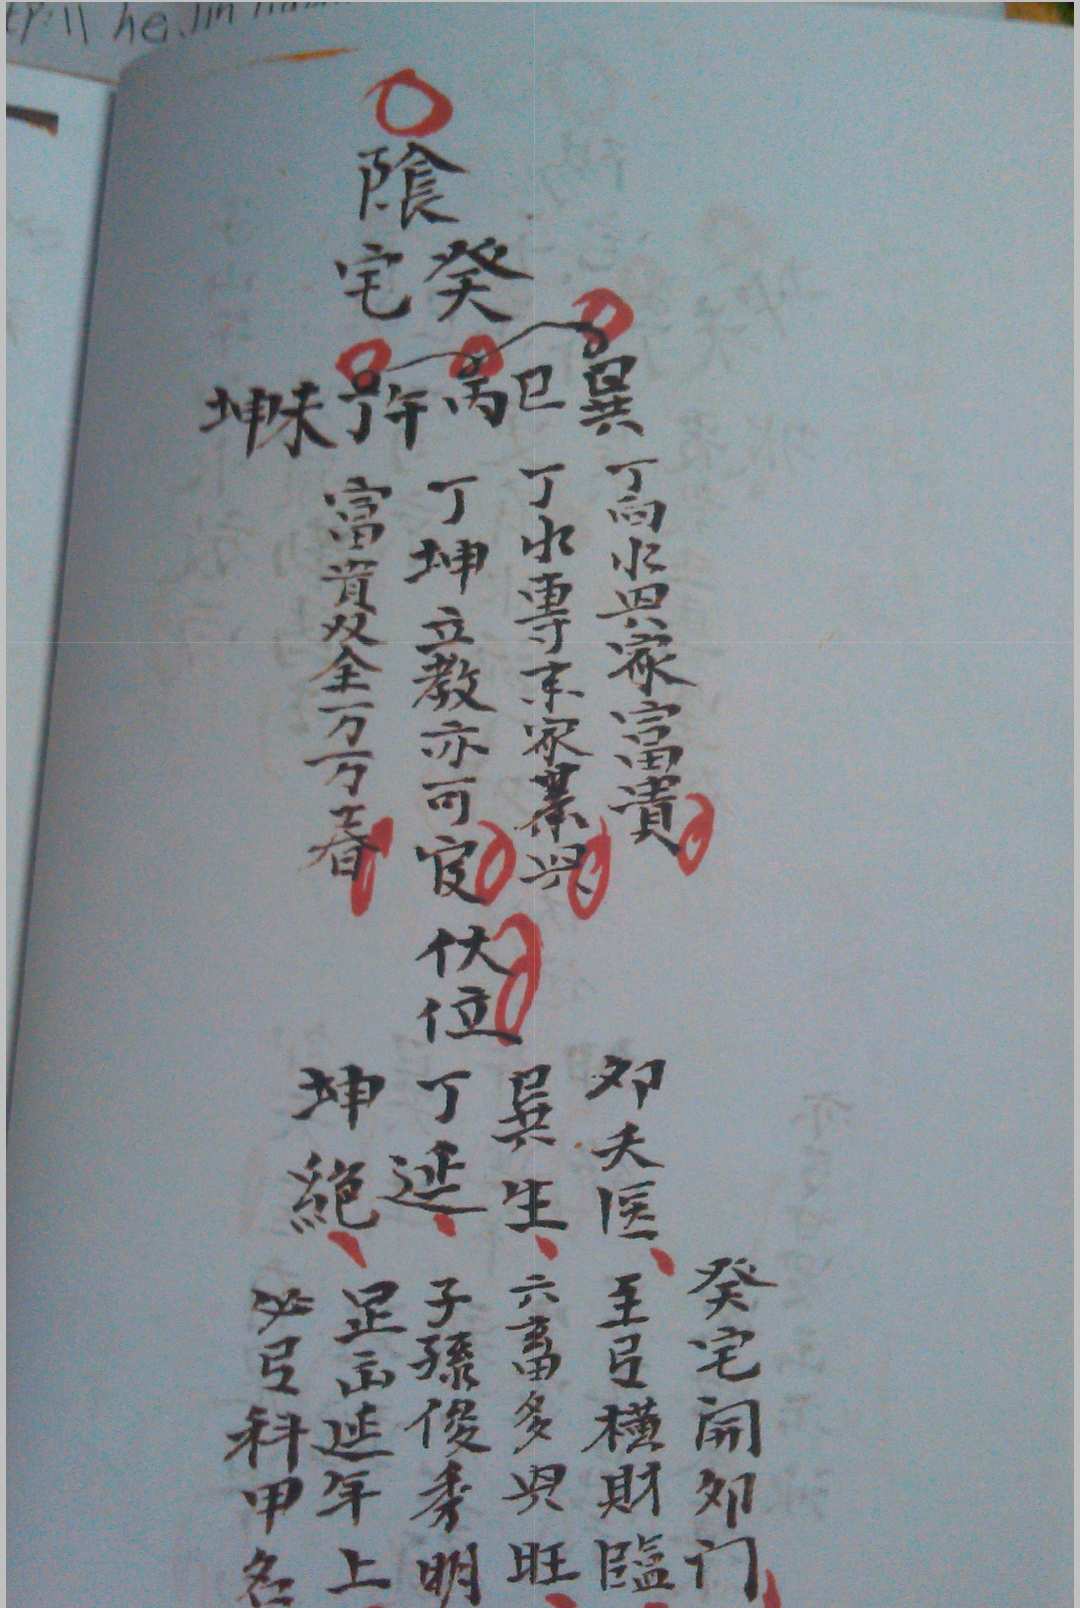 陰
宅癸
巽巳丙午丁未坤
丁向水兴家富貴
丁水專末家業兴
丁坤立教亦可官
富貴双全一万万春
伏位
卯天医
巽生
丁延
坤絶
癸宅開卯门
至弓横財臨
六畜多兴旺
子孫俊秀明
正西延年上
必弓科甲名